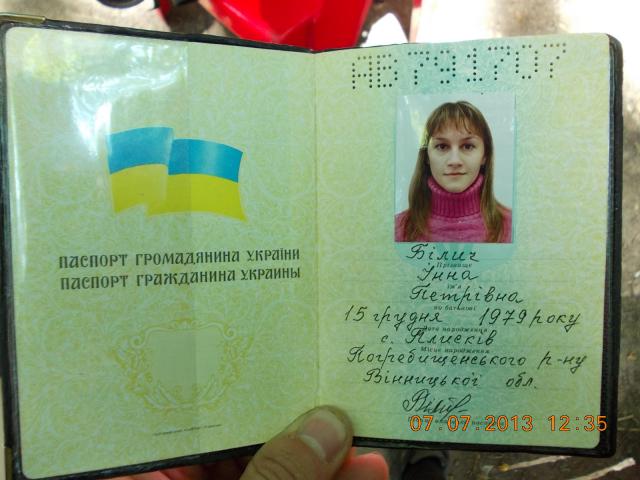 ПАСПОРТ ГРОМАДЯНИНА УКРАЇНИ
ПАСПОРТ ГРАЖДАНИНА УКРАИНЫ
АВ791707
Білич
Прізвище
Інна
Ім'я
Петрівна
по батькові
15 грудня 1979 року
Дата народження
с. Плисків
Місце народження
Погребищенського р-ну
Вінницької обл.
07.07.2013 12:35